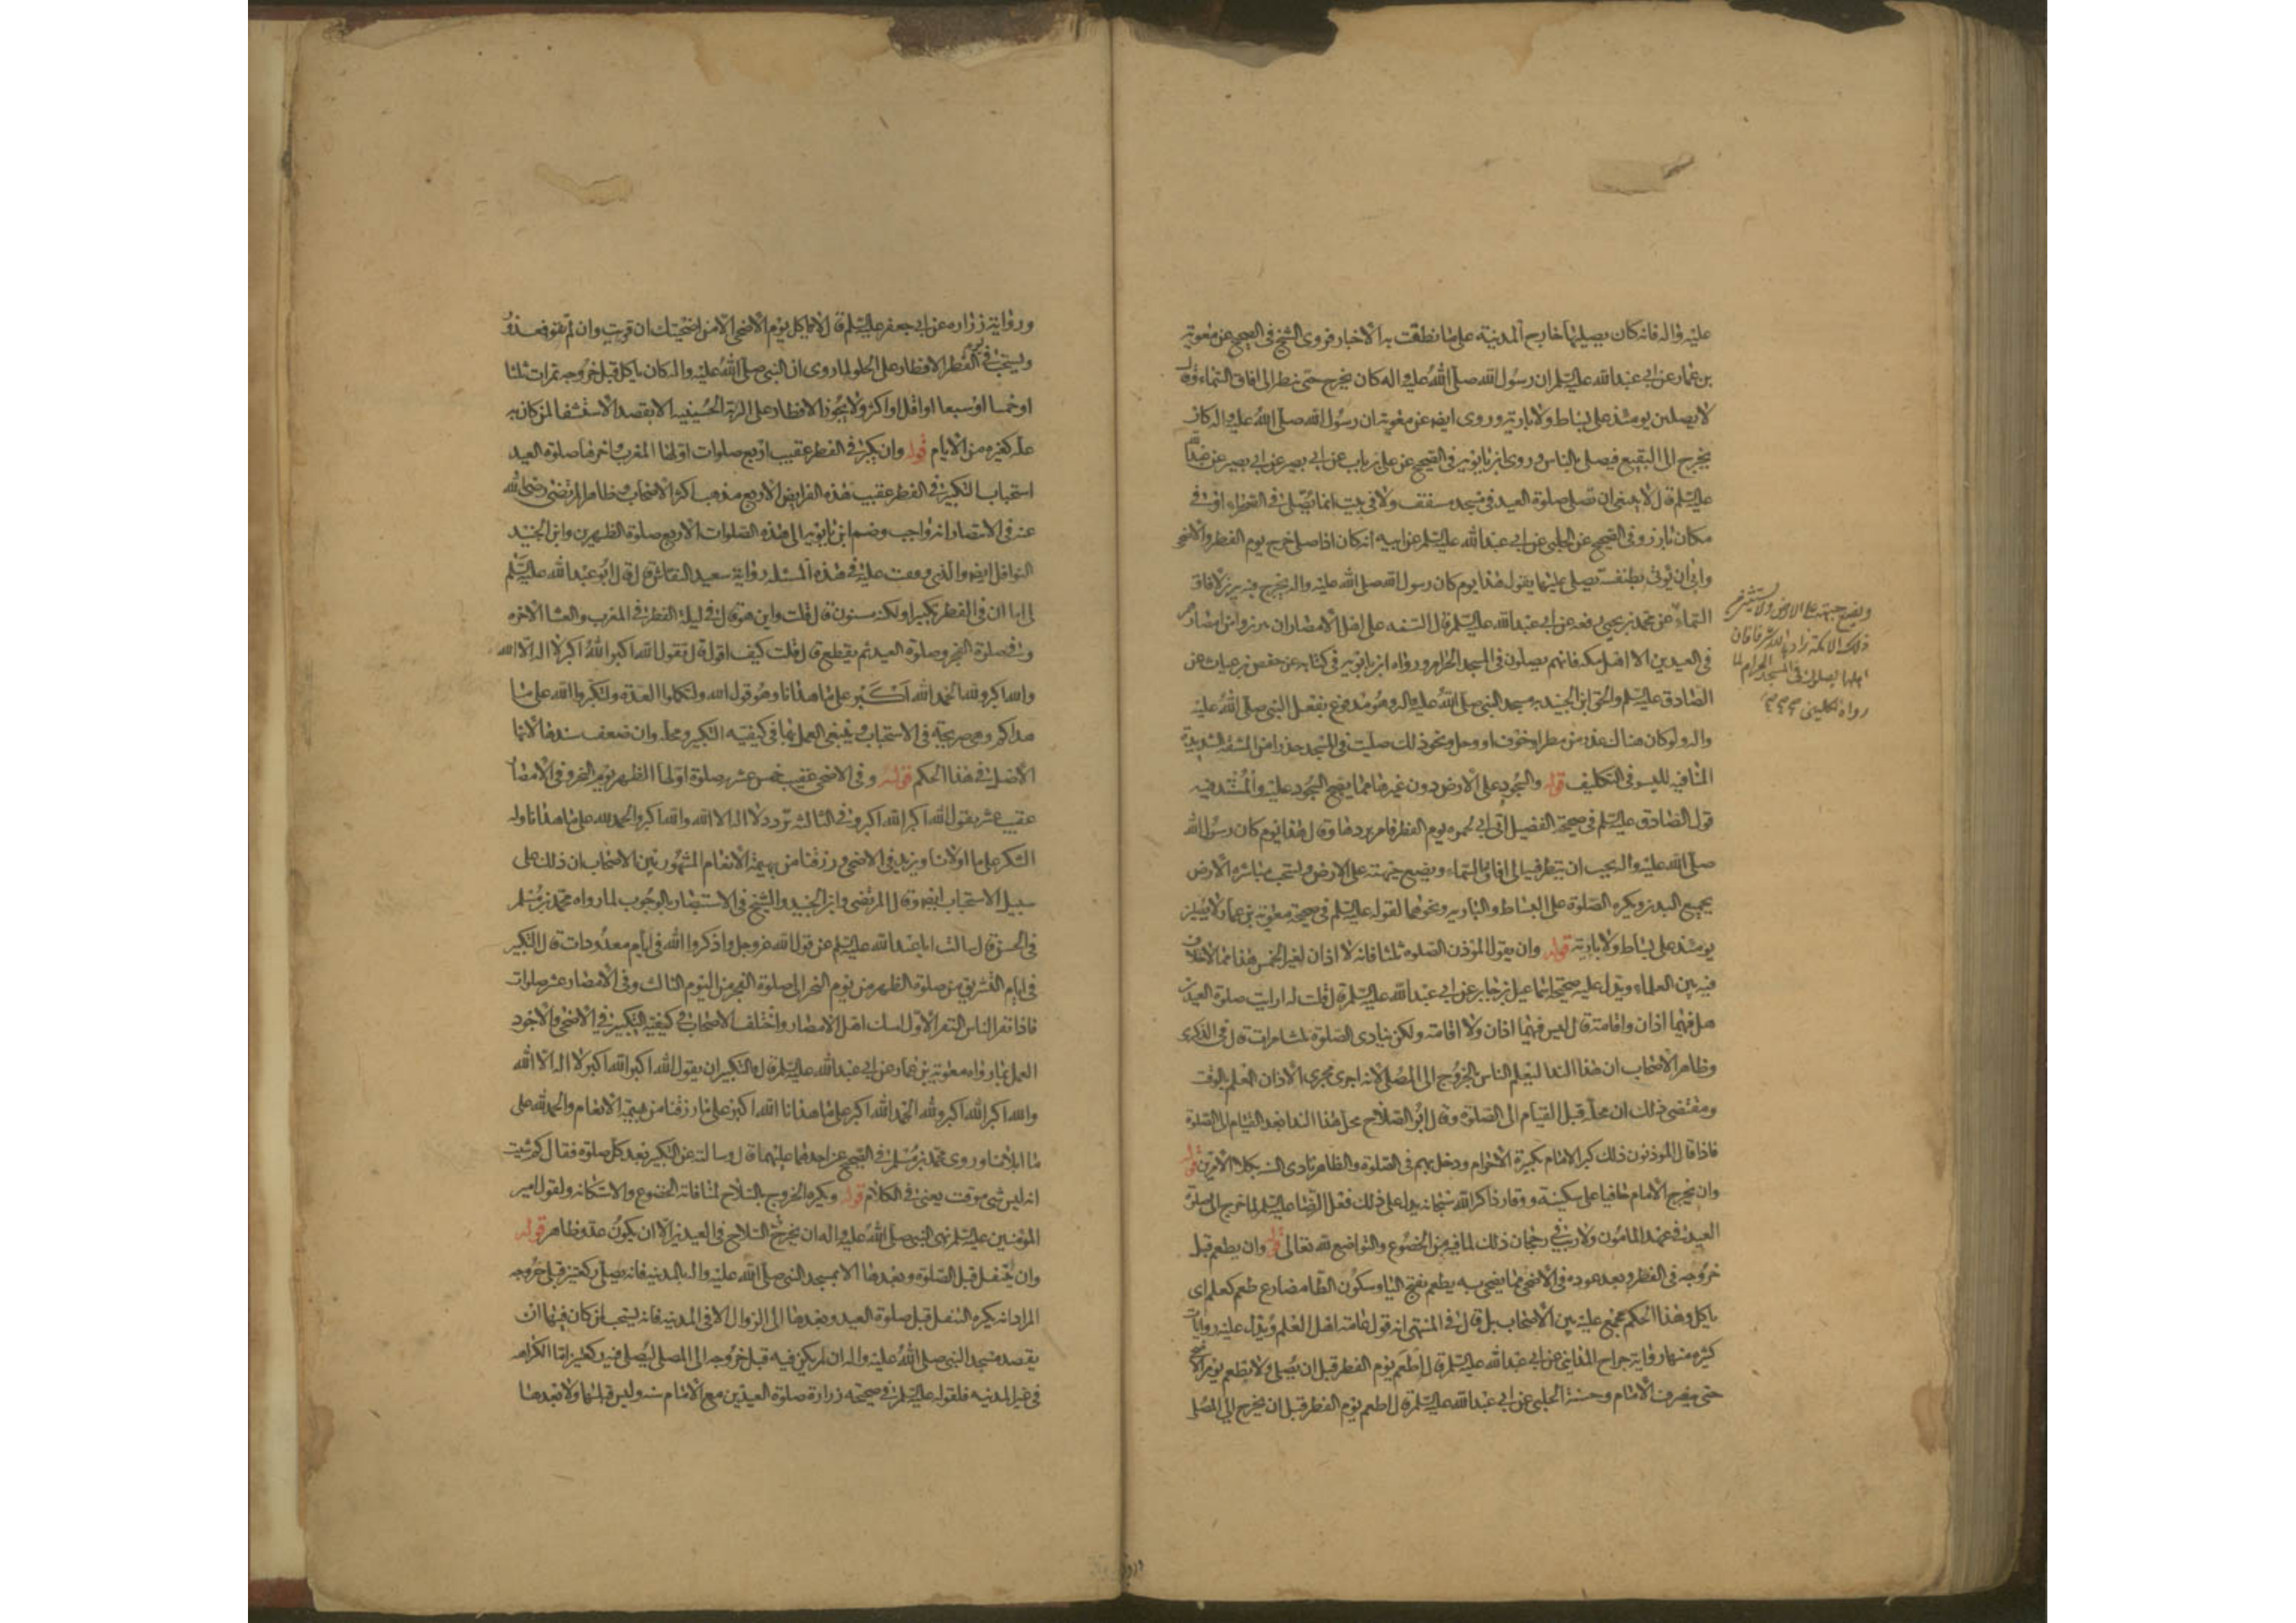 عليه واله فانه كان يصليها خارج المدينة على ما نطقت به الاخبار فروى الشيخ في الصحيح عن معوية
بن عمار عن ابي عبد الله عليه السلم ان رسول الله صلى الله عليه واله كان يخرج حتى ينظر الى افاق السماء وقال
لا يصلين يومئذ على بساط ولا بارية وروى ايضا عن معوية ان رسول الله صلى الله عليه واله كان
يخرج الى البقيع فيصلي بالناس وروى ابن بابويه في الصحيح عن علي بن رياب عن ابي بصير عن ابي بصير عن ابي عبد الله
عليه السلم قال لا ينبغي ان تصلي صلوة العيد في مسجد مسقف ولا في بيت انما يصلى في الصحراء او في
مكان بارز وفي الصحيح عن الحلبي عن ابي عبد الله عليه السلم عن ابيه انه كان اذا صلى خرج يوم الفطر والاضحى
وابى ان يؤتى بطنفسة يصلي عليها يقول هذا يوم كان رسول الله صلى الله عليه واله يخرج فيه يبرز لافاق
السماء عن محمد بن يحيى رفعه عن ابي عبد الله عليه السلم قال السنه على اهل الامصار ان يبرزوا من امصارهم
في العيدين الا اهل مكه فانهم يصلون في المسجد الحرام ورواه ابن بابويه في كتابه عن حفص بن غياث عن
الصادق عليه السلم والحق ابن الجنيد به مسجد النبي صلى الله عليه واله وهو مدفوع بفعل النبي صلى الله عليه
واله ولو كان هناك عذر من مطر او خوف او وحل ونحو ذلك صليت في المسجد حذرا من المشقة الشديدة
المنافيه لليسر في التكليف قوله والسجود على الارض دون غيرها مما يصح السجود عليه والمستند فيه
قول الصادق عليه السلم في صحيحة الفضيل اتى ابي بخمرة يوم الفطر فامر بردها وقال هذا يوم كان رسول الله
صلى الله عليه واله يحب ان ينظر فيه الى افاق السماء ويضع جبهته على الارض ويستحب مباشرة الارض
بجميع البدن ويكره الصلوة على البساط والباريه ونحوهما لقوله عليه السلم في صحيحة معوية بن عمار ولا يصلين
يومئذ على بساط ولا بارية قوله وان يقول المؤذن الصلوه ثلثا فانه لا اذان لغير الخمس هذا مما لا خلاف
فيه بين العلماء ويدل عليه صحيحة اسماعيل بن جابر عن ابي عبد الله عليه السلم قال قلت له ارايت صلوة العيدين
هل فيهما اذان واقامة قال ليس فيهما اذان ولا اقامة ولكن ينادى الصلوة ثلث مرات قال في الذكرى
وظاهر الاصحاب ان هذا الندا ليعلم الناس بالخروج الى المصلى لانه اجرى مجرى الاذان المعلم بالوقت
ومقتضى ذلك ان محله قبل القيام الى الصلوة وقال ابو الصلاح محل هذا الندا بعد القيام الى الصلوة
فاذا قال المؤذنون ذلك كبر الامام تكبيرة الاحرام ودخل بهم في الصلوة والظاهر تادى السنه بكلا الامرين قوله
وان يخرج الامام حافيا على سكينة ووقار ذاكرا لله سبحانه يدل على ذلك فعل الرضا عليه السلم لما خرج الى صلوة
العيد في عهد المامون ولا ريب في رجحان ذلك لما فيه من الخضوع والتواضع لله تعالى قوله وان يطعم قبل
خروجه في الفطر وبعد عوده في الاضحى مما يضحى به يطعم بفتح اليا وسكون الطا مضارع طعم كعلم اي
ياكل وهذا الحكم مجمع عليه بين الاصحاب بل قال في المنتهى انه قول عامة اهل العلم ويدل عليه روايات
كثيره منها رواية جراح المدايني عن ابي عبد الله عليه السلم قال اطعم يوم الفطر قبل ان يصلي ولا يطعم يوم الاضحى
حتى ينصرف الامام وحسنة الحلبي عن ابي عبد الله عليه السلم قال اطعم يوم الفطر قبل ان يخرج الى المصلى
ويضع جبهته على الارض ولا يستثنى من
ذلك الا مكة زادها الله شرفا فان
اهلها يصلون في المسجد الحرام لما
رواه الكليني
ورواية زراره عن ابي جعفر عليه السلم قال لا تاكل يوم الاضحى الا من اضحيتك ان قويت وان لم تقو فمعذور
ويستحب في يوم الفطر الافطار على الحلو لما روى ان النبي صلى الله عليه واله كان ياكل قبل خروجه تمرات ثلثا
او خمسا او سبعا او اقل او اكثر ولا يجوز الافطار على التربة الحسينيه الا بقصد الاستشفا لمن كان به
علة كغيره من الايام قوله وان يكبر في الفطر عقيب اربع صلوات اولها المغرب واخرها صلوة العيد
استحباب التكبير في الفطر عقيب هذه الفرايض الاربع مذهب اكثر الاصحاب وظاهر المرتضى رضي الله
عنه في الانتصار انه واجب وضم ابن بابويه الى هذه الصلوات الاربع صلوة الظهرين وابن الجنيد
النوافل ايضا والذي وقفت عليه في هذه المسئله رواية سعيد النقاش قال قال ابو عبد الله عليه السلم
لي اما ان في الفطر تكبيرا ولكنه مسنون قال قلت واين هو قال في ليلة الفطر في المغرب والعشا الاخره
وفي صلوة الفجر وصلوة العيد ثم يقطع قال قلت كيف اقول قال تقول الله اكبر الله اكبر لا اله الا الله
والله اكبر ولله الحمد الله اكبر على ما هدانا وهو قول الله ولتكملوا العدة ولتكبروا الله على ما
هداكم وهي صريحة في الاستحباب وينبغي العمل بها في كيفيه التكبير ومحله وان ضعف سندها لانها
الاصل في هذا الحكم قوله وفي الاضحى عقيب خمس عشر صلوة اولها الظهر يوم النحر وفي الامصار
عقيب عشر يقول الله اكبر الله اكبر وفي الثالثه تردد لا اله الا الله والله اكبر والحمد لله على ما هدانا وله
الشكر على ما اولانا ويزيد في الاضحى ورزقنا من بهيمة الانعام المشهور بين الاصحاب ان ذلك على
سبيل الاستحباب ايضا وقال المرتضى وابن الجنيد والشيخ في الاستبصار بالوجوب لما رواه محمد بن مسلم
في الحسن قال سالت ابا عبد الله عليه السلم عن قول الله عز وجل واذكروا الله في ايام معدودات قال التكبير
في ايام التشريق من صلوة الظهر من يوم النحر الى صلوة الفجر من اليوم الثالث وفي الامصار عشر صلوات
فاذا نفر الناس النفر الاول امسك اهل الامصار واختلف الاصحاب في كيفية التكبير في الاضحى والاجود
العمل بما رواه معوية بن عمار عن ابي عبد الله عليه السلم قال والتكبير ان يقول الله اكبر الله اكبر لا اله الا الله
والله اكبر الله اكبر ولله الحمد الله اكبر على ما هدانا الله اكبر على ما رزقنا من بهيمة الانعام والحمد لله على
ما ابلانا وروى محمد بن مسلم في الصحيح عن احدهما عليهما قال وسالته عن التكبير بعد كل صلوة فقال كم شئت
انه ليس شي موقت يعني في الكلام قوله ويكره الخروج بالسلاح لمنافاته الخضوع والاستكانه ولقول امير
المؤمنين عليه السلم نهى النبي صلى الله عليه واله ان يخرج السلاح في العيدين الا ان يكون عدو ظاهر قوله
وان يتنفل قبل الصلوة وبعدها الا بمسجد النبي صلى الله عليه واله بالمدينه فانه يصلي ركعتين قبل خروجه
المراد انه يكره التنفل قبل صلوة العيد وبعدها الى الزوال الا في المدينه فانه يستحب لمن كان فيها ان
يقصد مسجد النبي صلى الله عليه واله ان لم يكن فيه قبل خروجه الى المصلى ليصلي فيه ركعتين اما الكراهه
في غير المدينه فلقوله عليه السلم في صحيحه زرارة صلوة العيدين مع الامام سنه وليس قبلهما ولا بعدهما